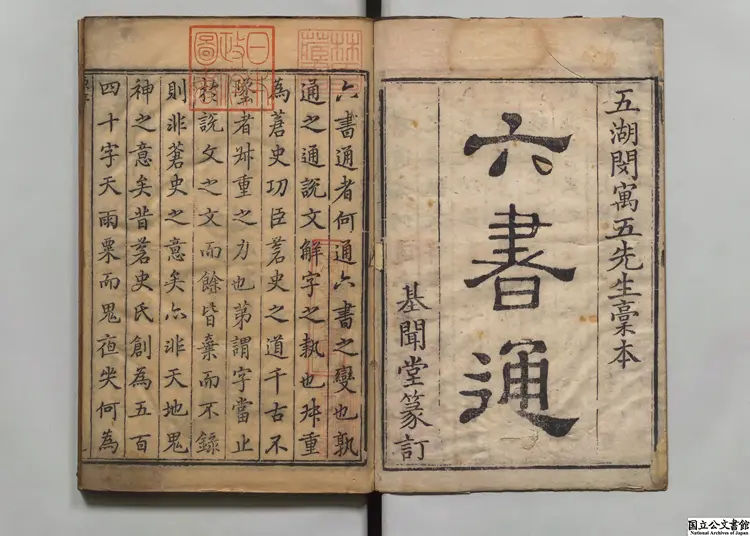 五湖閔寓五先生稾本
六書通
基聞堂篆訂
六書通者何通六書之變也孰
通之通說文解字之執也叔重
為蒼史功臣蒼史之道千古不
墜者叔重之力也第謂字當止
於說文之文而餘皆棄而不錄
則非蒼史之意矣亦非天地鬼
神之意矣昔蒼史氏創為五百
四十字天雨粟而鬼夜哭何為
国立公文書館
National Archives of Japan